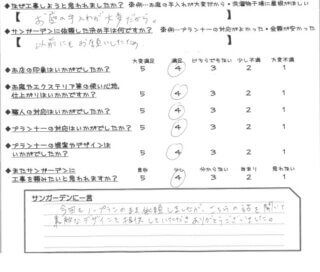 ◆なぜ工事しようと思われましたか？ 参考例…お庭の手入れが大変だから・洗濯物干場に屋根がほしい
【お庭の手入れが大変だから。】
◆サンガーデンに依頼した決め手は何ですか？ 参考例…プランナーの対応がよかった・金額が安かった
【以前にもお願いしたため】
大変満足 満足 どちらでもない 少し不満 大変不満
◆お店の印象はいかがでしたか？ 5 4 3 2 1
◆お庭やエクステリア等の使い心地、
仕上がりはいかがですか？ 5 4 3 2 1
◆職人の対応はいかがでしたか？ 5 4 3 2 1
◆プランナーの対応はいかがでしたか？ 5 4 3 2 1
◆プランナーの提案やデザインは
いかがでしたか？ 5 4 3 2 1
◆またサンガーデンに
工事を頼みたいと思われますか？ 5 4 3 2 1
サンガーデンに一言
今回もノープランのまま依頼しましたが、こちらの話を聞いて
素敵なデザインを提供していただきありがとうございました。